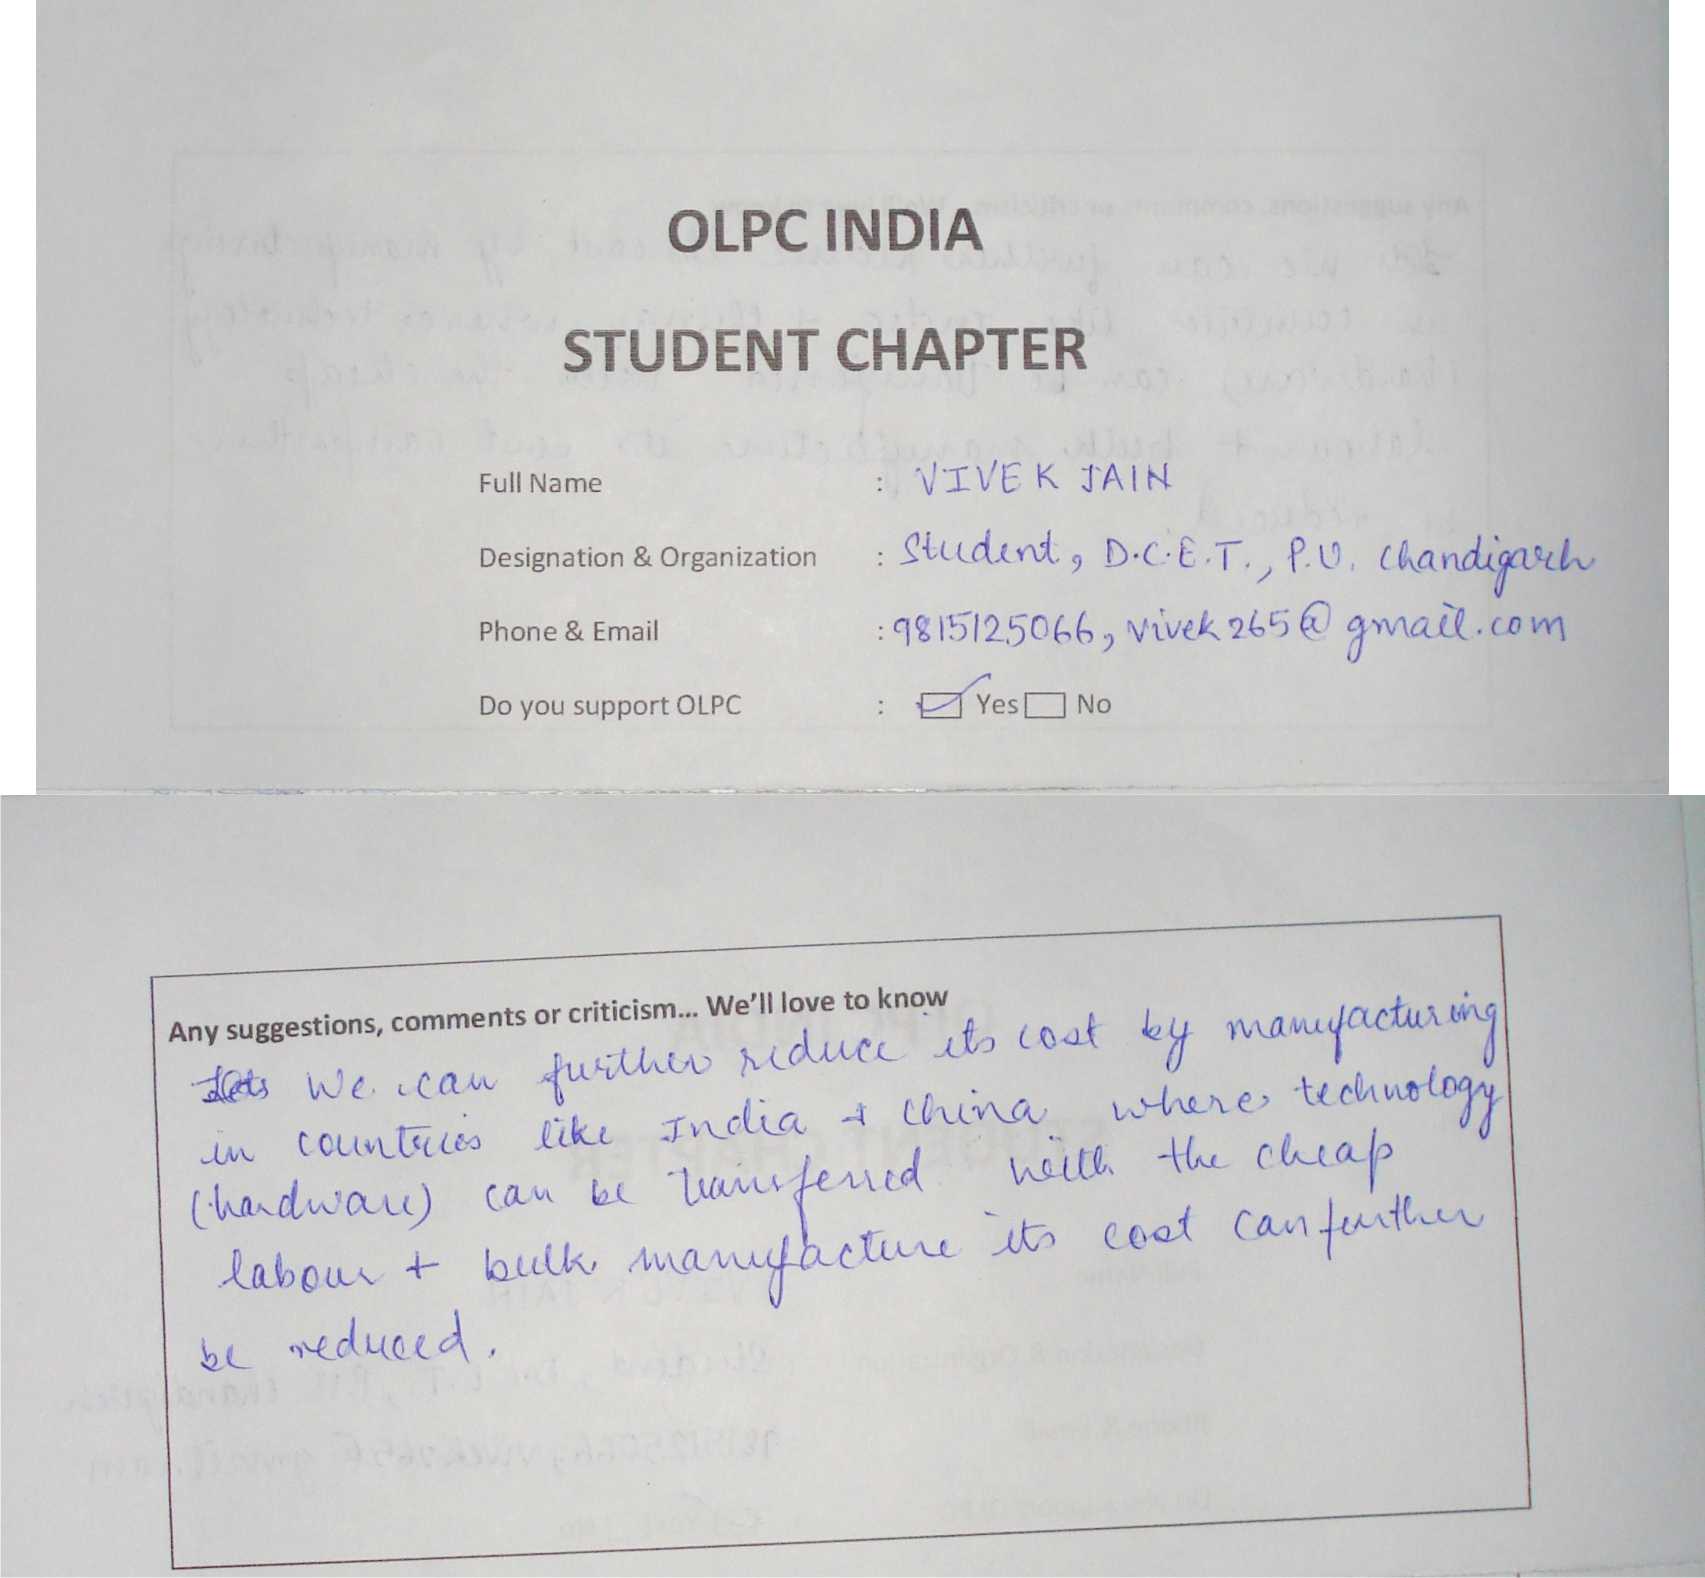 OLPC INDIA
STUDENT CHAPTER
Full Name : VIVEK JAIN
Designation & Organization : Student, D.C.E.T., P.U. Chandigarh
Phone & Email : 9815125066, vivek265@gmail.com
Do you support OLPC : Yes No
Any suggestions, comments or criticism... We'll love to know
We can further reduce its cost by manufacturing
in countries like India + China where technology
(hardware) can be transferred with the cheap
labour + bulk manufacture its cost can further
be reduced.